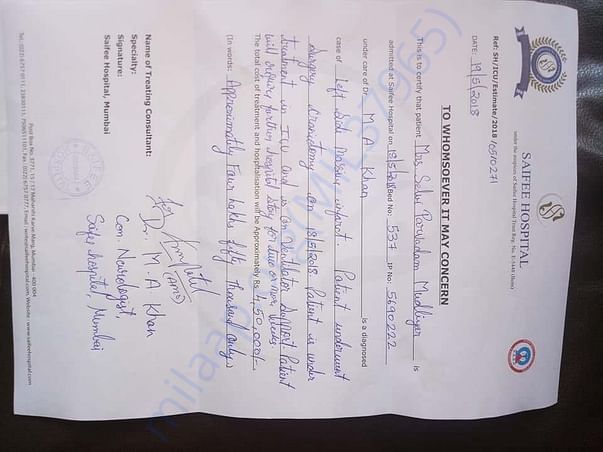 SAIFEE HOSPITAL
under the auspices of Saifee Hospital Trust Reg. No. E-5448 (Bom)
Ref: SH/ICU/Estimate/2018
DATE: 19/5/2018
TO WHOMSOEVER IT MAY CONCERN
This is to certify that patient Mrs Selvi Mudliyar is
admitted at Saifee Hospital on 18/5/2018 Bed No: 537 IP No: 5690222
under care of Dr. M A Khan is a diagnosed
case of left side massive infarct. Patient underwent
surgery craniotomy on 18/5/2018. Patient is under
treatment in ICU and is on Ventilator Support. Patient
will require further hospital stay for two or more weeks
The total cost of treatment and hosphalisation will be Approximately Rs. 4,50,000/-
(In words: Approximately Four lakhs fifty thousand only)
Name of Treating Consultant: Dr. M.A Khan
Specialty: Con. Neurologist,
Signature:
Saifee Hospital, Mumbai
Saifee hospital, Mumbai
SAIFEE
Post Box No. 3771, 15 / 17 Maharshi Karve Marg, Mumbai - 400 004
milaap